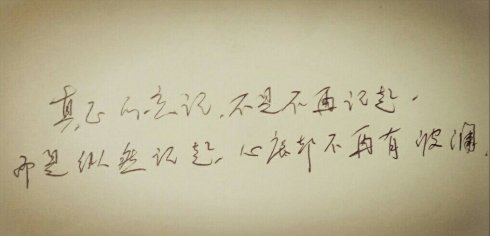 真正的忘记,不是不再记起,
而是纵然记起,心底却不再有波澜。